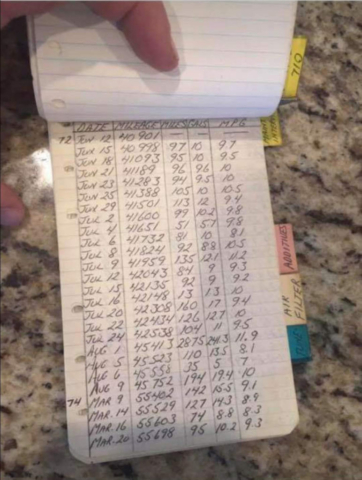 710
DATE MILEAGE MILES GALS M.P.G.
72 JUN 12 40901 — — —
JUN 15 40998 97 10 9.7
JUN 18 41093 95 10 9.5
JUN 21 41189 96 96 10
JUN 23 41283 94 9.5 10
JUN 25 41388 105 10 10.5
JUN 29 41501 113 12 9.4
JUL 2 41600 99 10.2 9.8
JUL 4 41651 51 5.7 9.8
JUL 6 41732 81 10 8.1
JUL 8 41824 92 8.8 10.5
JUL 9 41959 135 12.1 11.2
JUL 12 42043 84 9 9.3
JUL 15 42135 92 9 9.2
JUL 16 42148 13 1.3 10
JUL 20 42308 160 17 9.4
JUL 22 42434 126 12.7 10
JUL 24 42538 104 11 9.5
AUG 1 45413 2875 24.3 11.9
AUG 5 45523 110 13.5 8.1
AUG 6 45558 35 5 7
AUG 9 45752 194 19.4 10
74 MAR 9 55402 142 15.5 9.1
MAR. 14 55529 127 14.3 8.9
MAR. 16 55603 74 8.8 8.3
MAR. 20 55698 95 10.2 9.3
ADDITIVES
AIR FILTER